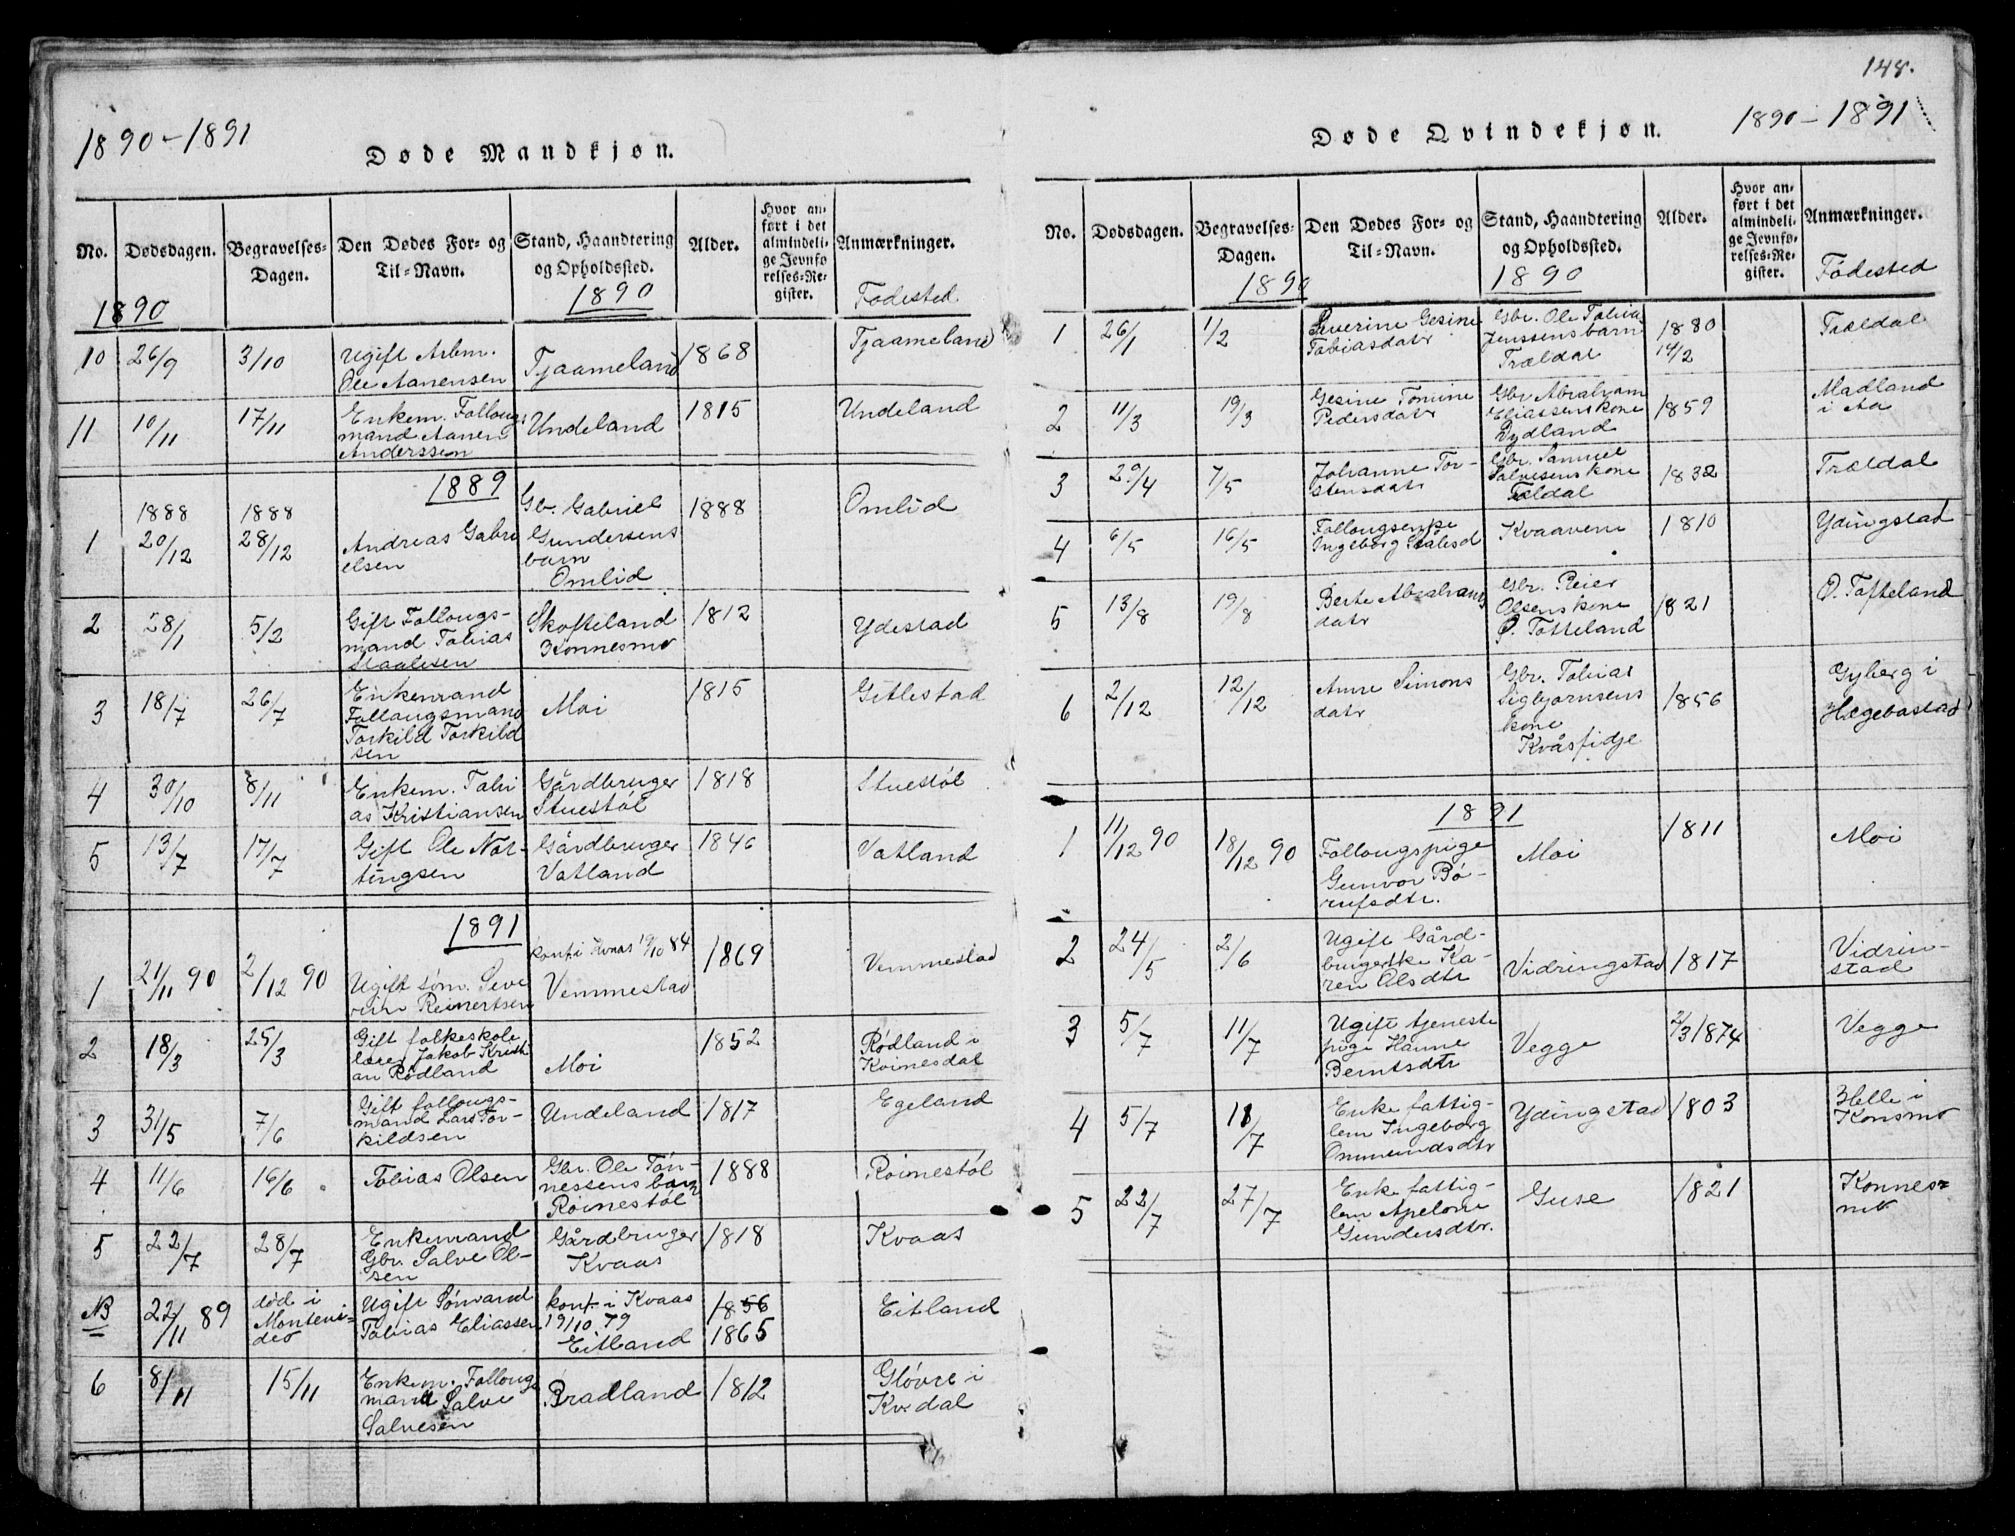 148.
1890-1891
Døde Mandkjøn.
No.
Dødsdagen.
Begravelses-Dagen.
Den Dødes For- og Til-Navn.
Stand, Haandtering og Opholdssted.
Alder.
Hvor anført i det almindelige Jevnførelses-Register.
Anmærkninger.
Fødested
1890
1890
10 26/9 3/10 Ugift Arbm. Ole Aanensen Tjaameland 1868 Tjaameland
11 10/11 17/11 Enkem. Follougsmand Aanen Anderssen Undeland 1815 Undeland
1889
1 1888 20/12 1888 28/12 Andreas Gabrielsen Gb. Gabriel Gundersens barn Omlid 1888 Omlid
2 28/1 5/2 Gift Follougsmand Tobias Staalesen Skofteland Konnesmo 1812 Ydestad
3 18/7 26/7 Enkemand Follougsmand Torkild Torkildsen Moi 1815 Gitlestad
4 30/10 8/11 Enkem. Tobias Kristiansen Gårdbruger Stuestøl 1818 Stuestøl
5 13/7 17/7 Gift Ole Nottingsen Gårdbruger Vatland 1846 Vatland
1891
1 21/11 90 2/12 90 Ugift søm. Severin Reinertsen konf. i Kvaas 19/10 84 Vemmestad 1869 Vemmestad
2 18/3 25/3 Gift folkeskolelærer Jakob Kristian Rødland Moi 1852 Rødland i Kvinesdal
3 31/5 7/6 Gift follougsmand Lars Torkildsen Undeland 1817 Egeland
4 11/6 16/6 Tobias Olsen Gbr. Ole Tønnessens barn Røinestøl 1888 Røinestøl
5 22/7 28/7 Enkemand Gbr. Salve Olsen Gårdbruger Kvaas 1818 Kvaas
NB 22/11 89 død i Montevideo Ugift Sømand Tobias Eliassen konf. i Kvaas 19/10 79 Eitland 1856 1865 Eitland
6 8/11 15/11 Enkem. Follougsmand Salve Salvesen Bradland 1812 Gløvre i Kv.dal
Døde Qvindekjøn.
1890-1891
No.
Dødsdagen.
Begravelses-Dagen.
Den Dødes For- og Til-Navn.
Stand, Haandtering og Opholdssted.
Alder.
Hvor anført i det almindelige Jevnførelses-Register.
Anmærkninger.
Fødested
1890
1890
1 26/1 1/2 Severine Gesine Tobiasdatr Gbr. Ole Tobias Jenssens barn Trældal 1880 14/2 Trældal
2 11/3 19/3 Gesine Tomine Pedersdatr Gbr Abraham Eliassens kone Dydland 1859 Madland i Aa
3 29/4 7/5 Johanne Torstensdatr Gbr. Samuel Salvesens kone Tældal 1832 Trældal
4 6/5 16/5 Follougsenke Ingeborg Staalesd Kvaavem 1810 Ydingstad
5 13/8 19/8 Berte Abrahamsdatr Gbr. Reier Olsens kone Ø. Tofteland 1821 Ø. Tofteland
6 2/12 12/12 Anne Simonsdatr Gbr. Tobias Sigbjørnsens kone Kvåsfidje 1856 Gyberg i Hægebostad
1891
1 11/12 90 18/12 90 Follougspige Gunvor Børufsdtr. Moi 1811 Moi
2 24/5 2/6 Ugift Gårdbrugerske Karen Olsdtr Vidringstad 1817 Vidrinstad
3 5/7 11/7 Ugift tjenestepige Hanne Berntsdtr Vegge 2/3 1874 Vegge
4 5/7 11/7 Enke fattiglem Ingeborg Ommundsdtr Ydingstad 1803 Helle i Konsmo
5 22/7 27/7 Enke fattiglem Apelone Gundersdtr. Guse 1821 Konnesmo